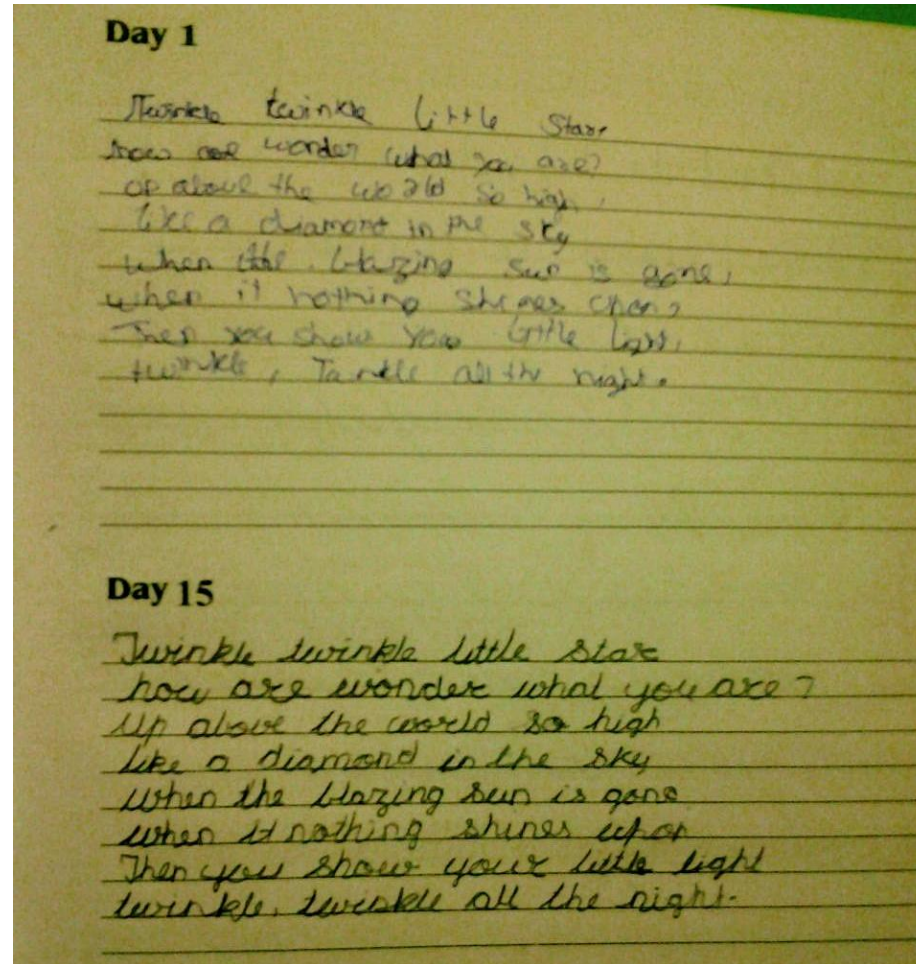 Day 1
Twinkle twinkle little Star,
how are wonder what you are?
up above the world so high,
like a diamond in the sky
when the blazing sun is gone,
when it nothing shines upon,
Then you show your little light,
twinkle, Twinkle all the night.
Day 15
Twinkle twinkle little star
how are wonder what you are?
Up above the world so high
like a diamond in the sky
When the blazing sun is gone
when it nothing shines upon
Then you show your little light
twinkle, twinkle all the night.